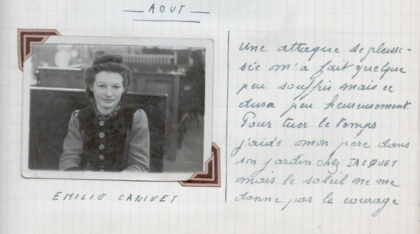 AOUT
Une attaque de pleuré-
sie m'a fait quelque
peu souffrir mais ce
dura peu heureusement.
Pour tuer le temps
j'aide mon père dans
son jardin chez JACQUET
mais le soleil ne me
donne pas le courage
EMILIE CANIVET